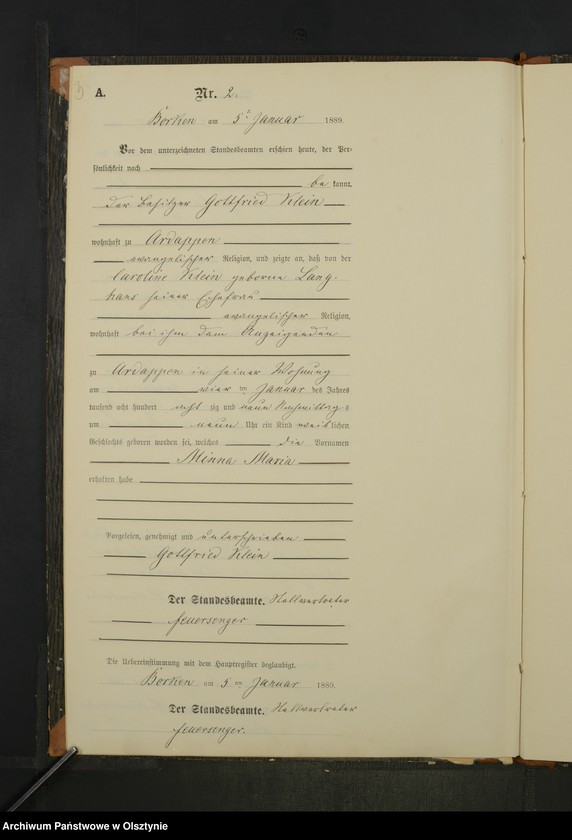 3
A. Nr. 2.
Borken am 5ᵗ Januar 1889.
Vor dem unterzeichneten Standesbeamten erschien heute, der Per-
sönlichkeit nach
be kannt,
der Besitzer Gottfried Klein
wohnhaft zu Ardappen
evangelischer Religion, und zeigte an, daß von der
Caroline Klein geborne Lang-
hans seiner Ehefrau
evangelischer Religion,
wohnhaft bei ihm dem Anzeigenden
zu Ardappen in seiner Wohnung
am vier ten Januar des Jahres
tausend acht hundert acht zig und neun Nachmittags
um neun Uhr ein Kind weiblichen
Geschlechts geboren worden sei, welches die Vornamen
Minna Maria
erhalten habe
Vorgelesen, genehmigt und unterschrieben
Gottfried Klein
Der Standesbeamte. Stellvertreter
Feuersenger
Die Uebereinstimmung mit dem Hauptregister beglaubigt.
Borken am 5 ten Januar 1889.
Der Standesbeamte. Stellvertreter
Feuersenger.
Archiwum Państwowe w Olsztynie